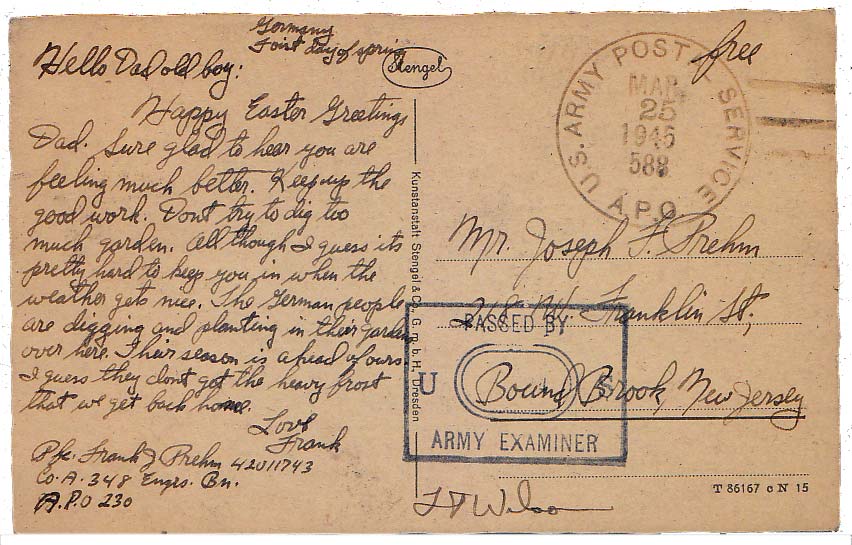 Germany
First day of spring
Hello Dad old boy:
Happy Easter Greetings
Dad. Sure glad to hear you are
feeling much better. Keep up the
good work. Dont try to dig too
much garden. All though I guess its
pretty hard to keep you in when the
weather gets nice. The German people
are digging and planting in their garden
over here. Their season is ahead of ours
I guess they dont get the heavy frost
that we get back home.
Love
Frank
Pfc. Frank J Prehm 42011743
Co. A. 348 Engrs. Bn.
A.P.O 230
Stengel
Kunstanstalt Stengel & Co. G. m. b. H. Dresden
free
U.S. ARMY POSTAL SERVICE
MAR
25
1945
588
A.P.O.
Mr. Joseph F. Prehm
W. Franklin St,
Bound Brook, New Jersey
PASSED BY
U S
ARMY EXAMINER
T 86167 c N 15